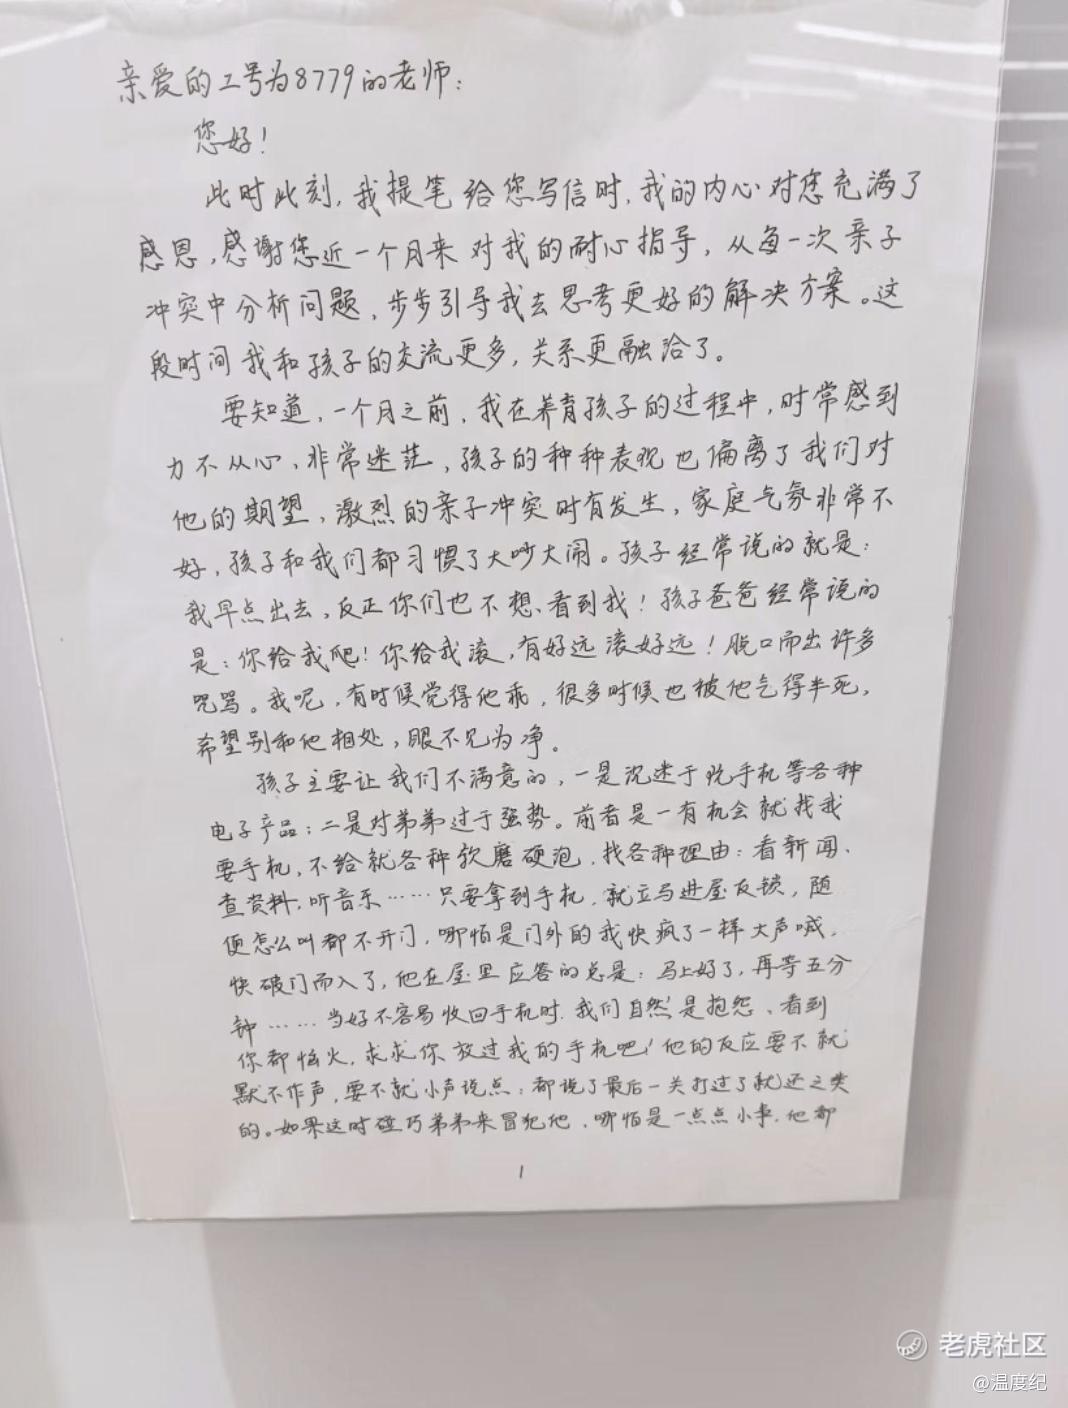 亲爱的工号为8779的老师:
您好!
此时此刻,我提笔给您写信时,我的内心对您充满了
感恩,感谢您近一个月来对我的耐心指导,从每一次亲子
冲突中分析问题,步步引导我去思考更好的解决方案。这
段时间我和孩子的交流更多,关系更融洽了。
要知道,一个月之前,我在养育孩子的过程中,时常感到
力不从心、非常迷茫,孩子的种种表现也偏离了我们对
他的期望,激烈的亲子冲突时有发生,家庭气氛非常不
好,孩子和我们都习惯了大吵大闹。孩子经常说的就是:
我早点出去,反正你们也不想看到我!孩子爸爸经常说的
是:你给我爬!你给我滚,有好远滚好远!脱口而出许多
咒骂。我呢,有时候觉得他乖,很多时候也被他气得半死,
希望别和他相处,眼不见为净。
孩子主要让我们不满意的,一是沉迷于玩手机等各种
电子产品;二是对弟弟过于强势。前者是一有机会就找我
要手机,不给就各种软磨硬泡,找各种理由:看新闻、
查资料,听音乐……只要拿到手机,就立马进屋反锁,随
便怎么叫都不开门,哪怕是门外的我快疯了一样大声喊,
快破门而入了,他在屋里应答的总是:马上好了,再等五分
钟……当好不容易收回手机时,我们自然是抱怨、看到
你都恼火,求求你放过我的手机吧!他的反应要不就
默不作声,要不就小声说点:都说了最后一关打过了就还之类
的。如果这时碰巧弟弟来冒犯他,哪怕是一点点小事,他都
1
老虎社区
@温度纪